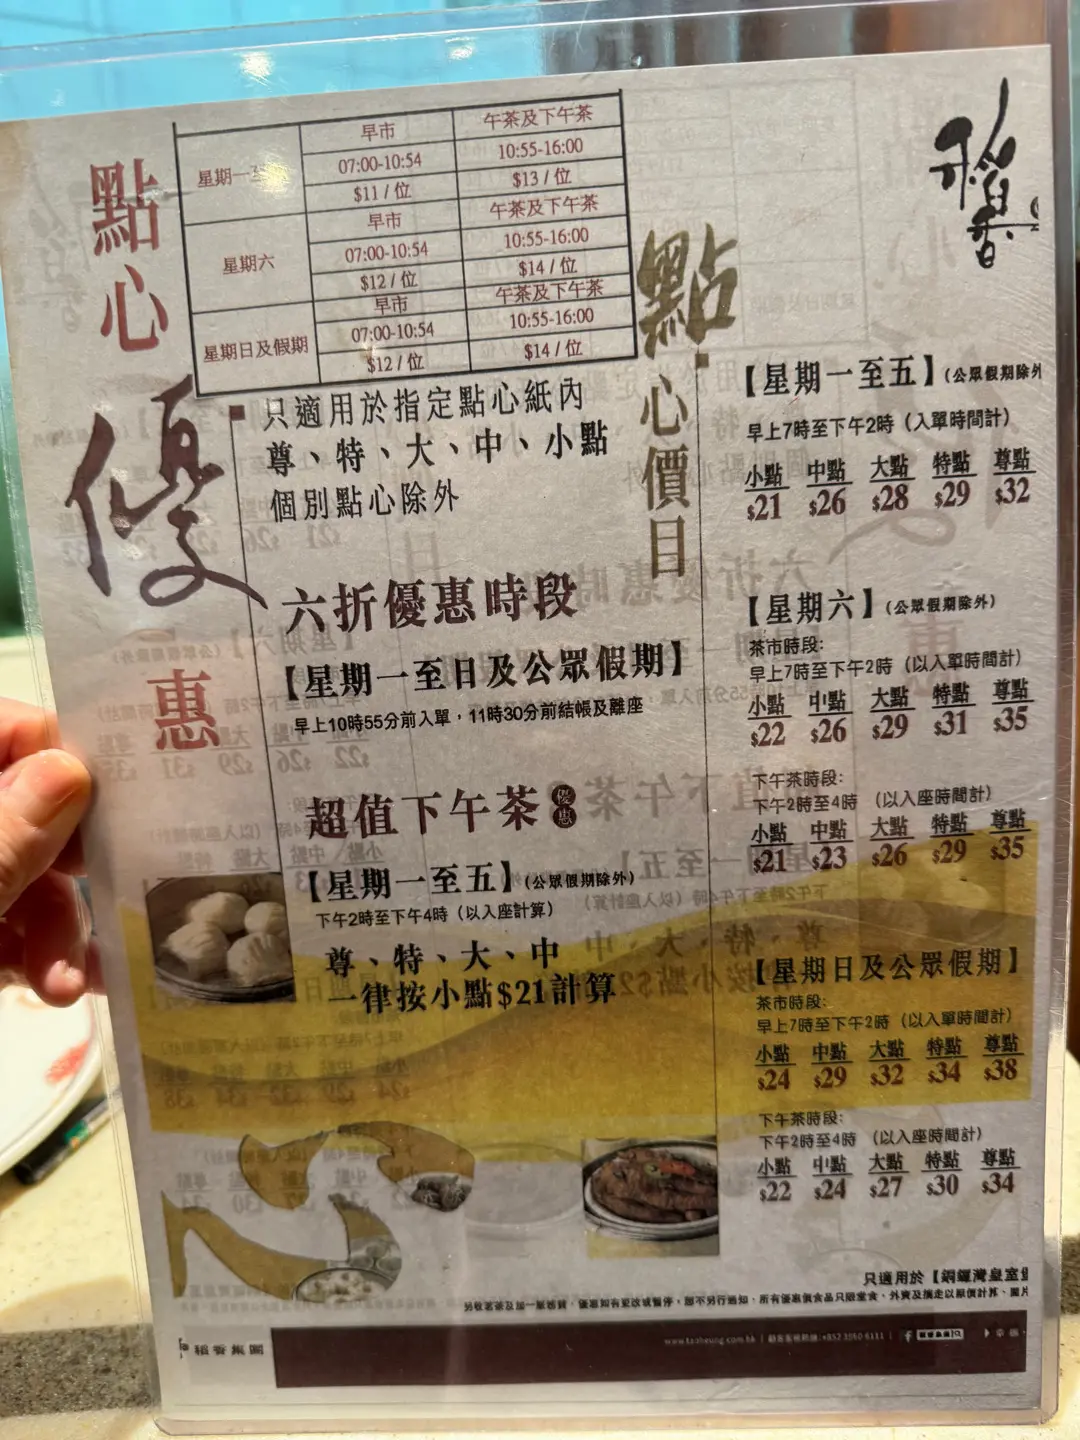 點心
優
惠
早市
午茶及下午茶
星期一至
07:00-10:54
10:55-16:00
$11 / 位
$13 / 位
早市
午茶及下午茶
星期六
07:00-10:54
10:55-16:00
$12 / 位
$14 / 位
早市
午茶及下午茶
星期日及假期
07:00-10:54
10:55-16:00
$12 / 位
$14 / 位
只適用於指定點心紙內
尊、特、大、中、小點
個別點心除外
六折優惠時段
【星期一至日及公眾假期】
早上10時55分前入單，11時30分前結帳及離座
超值下午茶 優惠
【星期一至五】(公眾假期除外)
下午2時至下午4時（以入座計算）
尊、特、大、中
一律按小點$21計算
稻香
點心價目
【星期一至五】(公眾假期除外
早上7時至下午2時（入單時間計）
小點 中點 大點 特點 尊點
$21 $26 $28 $29 $32
【星期六】(公眾假期除外)
茶市時段:
早上7時至下午2時（以入單時間計）
小點 中點 大點 特點 尊點
$22 $26 $29 $31 $35
下午茶時段:
下午2時至4時（以入座時間計）
小點 中點 大點 特點 尊點
$21 $23 $26 $29 $35
【星期日及公眾假期】
茶市時段:
早上7時至下午2時（以入單時間計）
小點 中點 大點 特點 尊點
$24 $29 $32 $34 $38
下午茶時段:
下午2時至4時（以入座時間計）
小點 中點 大點 特點 尊點
$22 $24 $27 $30 $34
只適用於【銅鑼灣皇室堡
另收茗茶及加一服務費，優惠如有更改或暫停，恕不另行通知。所有優惠價食品只限堂食，外賣及攜走以原價計算。圖片
稻香集團
www.taoheung.com.hk | 顧客服務熱線:+852 3960 6111